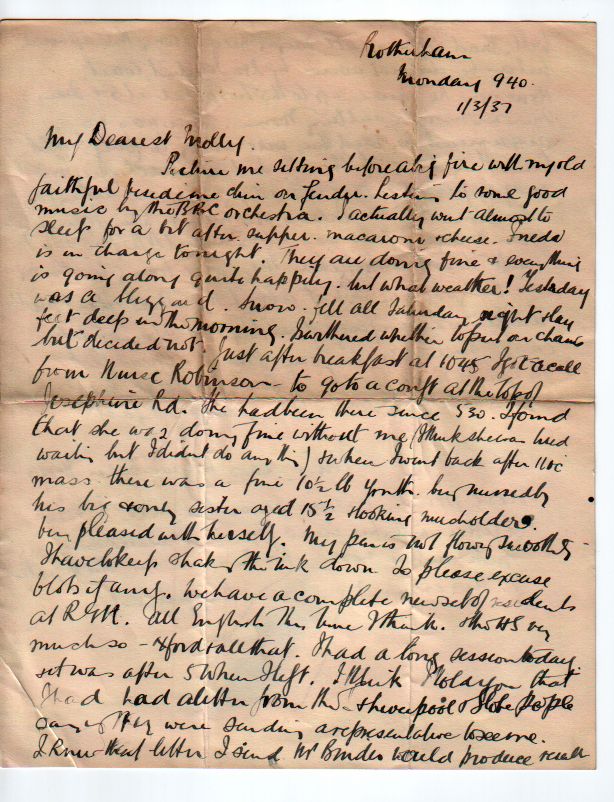 Rotherham
Monday 940.
1/3/37
My Dearest Molly.
Picture me sitting before a big fire with my old
faithful beside me chin on fender. Listening to some good
music by the BBC orchestra. I actually went almost to
sleep for a bit after supper. macaroni & cheese.
is in charge tonight. They are doing fine & everything
is going along quite happily. but what weather! Yesterday
was a blizzard. Snow fell all Saturday night & lay
feet deep in the morning. I whether to put on chains
but decided not. Just after breakfast at 1045 I got a call
from Nurse Robinson - to go to a conft at the top of
Josephine Rd. She had been there since 530. I found
that she was doing fine without me (I think she was tired
waiting but I didn't do anything) so when I went back after 11 oc
mass there was a fine 10½ lb youth being nursed by
his big & only sister aged 15½ & looking much older &
very pleased with herself. My pen is not flowing smoothly -
I have to keep shaking the ink down so please excuse
blots if any. We have a complete new set of residents
at R.G.H. all English this time I think. The HS very
much so - & all that. I had a long session today.
it was after 5 when I left. I think I told you that
I had had a letter from the Liverpool & Globe people
saying they were sending a representative to see me.
I knew that letter I send Mr would produce result